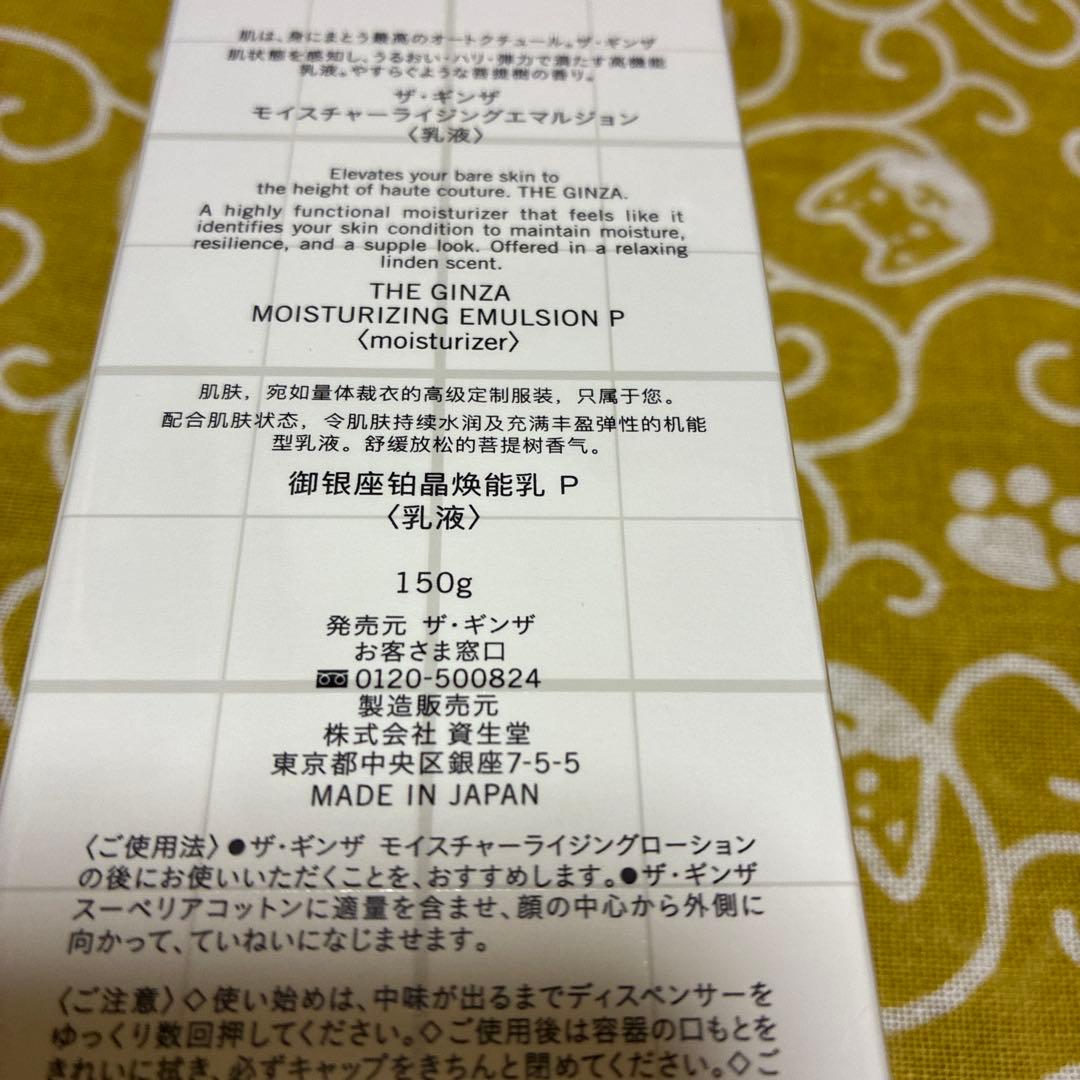 肌は、身にまとう最高のオートクチュール。ザ・ギンザ
肌状態を感知し、うるおい・ハリ・弾力で満たす高機能
乳液。やすらぐような菩提樹の香り。
ザ・ギンザ
モイスチャーライジングエマルジョン
〈乳液〉
Elevates your bare skin to
the height of haute couture. THE GINZA.
A highly functional moisturizer that feels like it
identifies your skin condition to maintain moisture,
resilience, and a supple look. Offered in a relaxing
linden scent.
THE GINZA
MOISTURIZING EMULSION P
〈moisturizer〉
肌肤，宛如量体裁衣的高级定制服装，只属于您。
配合肌肤状态，令肌肤持续水润及充满丰盈弹性的机能
型乳液。舒缓放松的菩提树香气。
御银座铂晶焕能乳 P
〈乳液〉
150g
発売元 ザ・ギンザ
お客さま窓口
0120-500824
製造販売元
株式会社 資生堂
東京都中央区銀座7-5-5
MADE IN JAPAN
〈ご使用法〉●ザ・ギンザ モイスチャーライジングローション
の後にお使いいただくことを、おすすめします。●ザ・ギンザ
スーペリアコットンに適量を含ませ、顔の中心から外側に
向かって、ていねいになじませます。
〈ご注意〉◇使い始めは、中味が出るまでディスペンサーを
ゆっくり数回押してください。◇ご使用後は容器の口もとを
きれいに拭き、必ずキャップをきちんと閉めてください。◇ご